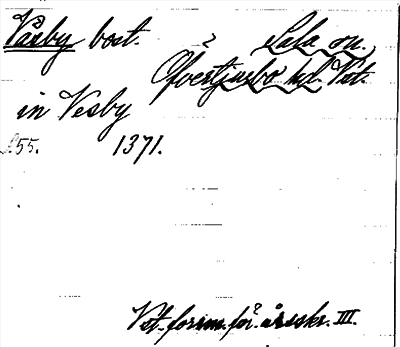 Väsby bost. Sala sn.
Öfvertjurbo hd. Vst.
in Vesby
s. 55. 1371.
Vst. fornm. för. årsskr. III.